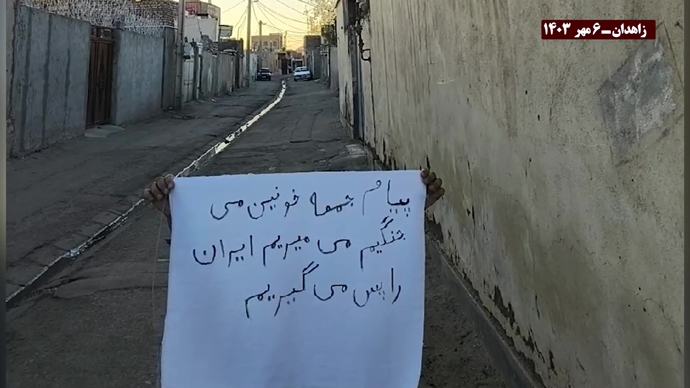 زاهدان_۶ مهر ۱۴۰۳
پیام جمعه خونین می
جنگیم می میریم ایران
را پس می گیریم